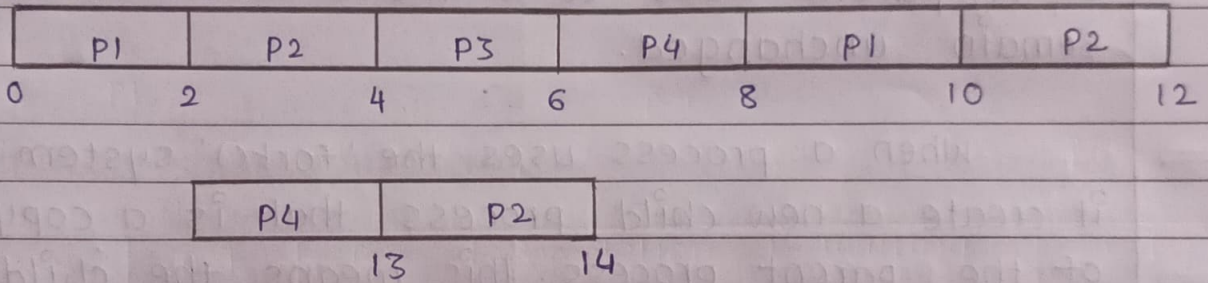 P1 P2 P3 P4 P1 P2
0 2 4 6 8 10 12
P4 P2
13 14